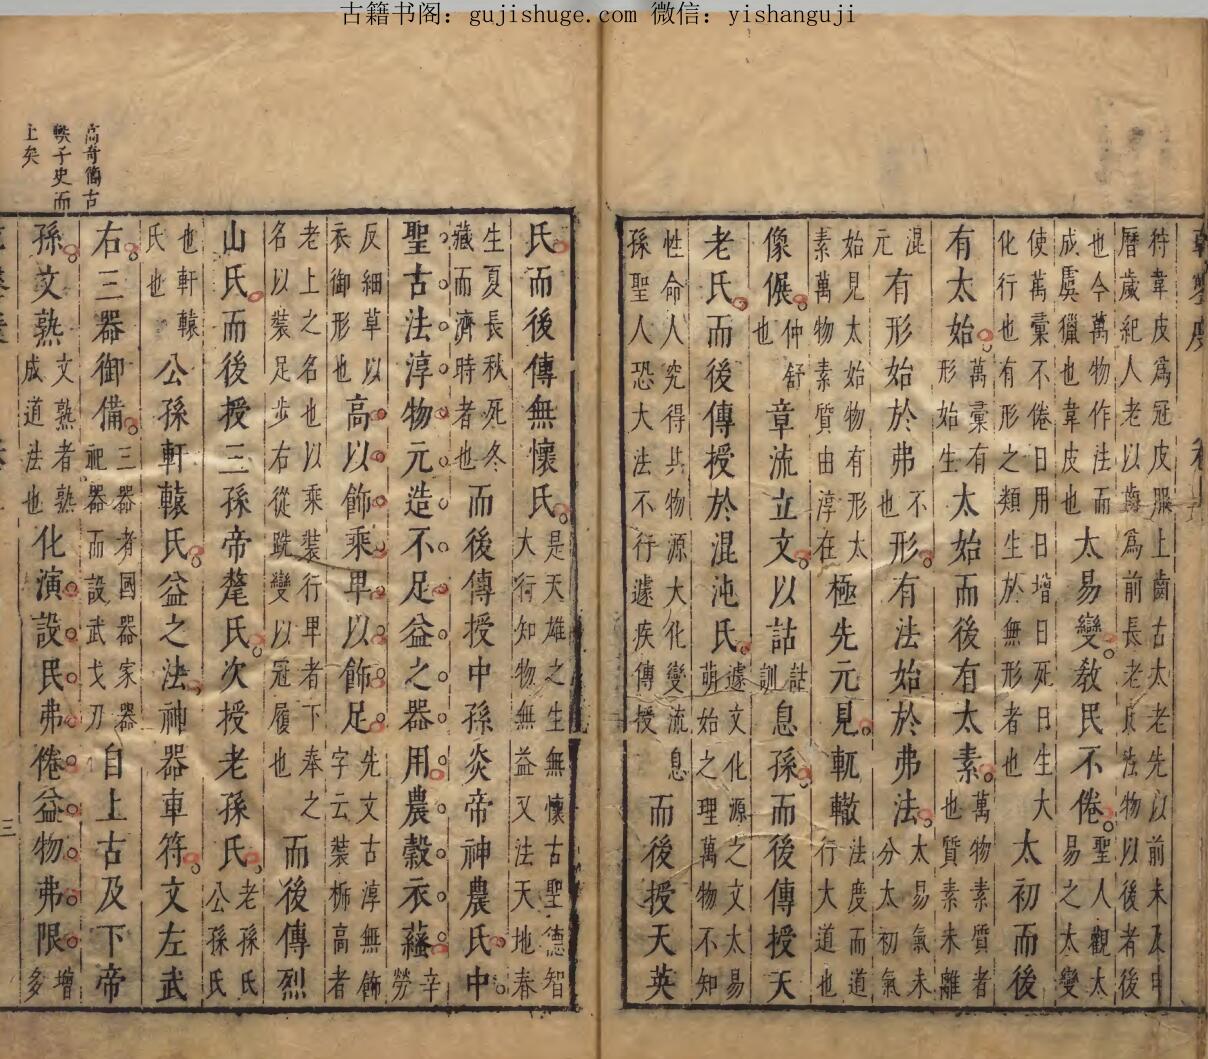 古籍书阁：gujishuge.com 微信：yishanguji
符韋皮爲冠皮服上齒古太老先以前未及中
曆歲紀人老以齒爲前長老以法物以後者後
也今萬物作法而成虞獵也韋皮也太易變教民不倦聖人觀太易之太變
使萬彙不倦日用日增日死日生大化行也有形之類生於無形者也太初而後
有太始萬彙有形始生太始而後有太素萬物素質者也質素未離
混元有形始於弗不也形有法始於弗法太易氣未分太初氣
始見太始物有形太素萬物素質由淳在極先元見軏轍法度而道行大道也
像俱仲舒也章流立文以詁詁訓息孫而後傳授天
老氏而後傳授於混沌氏遽文化源之文太易萌始之理萬物不知
性命人究得其物源大化變流息孫聖人恐大法不行遽疾傳授而後授天英
高奇簡古
軼子史而
上矣
氏而後傳無懷氏是天雄之生無懷古聖德智大行知物無益又法天地春
生夏長秋死冬藏而濟時者也而後傳授中孫炎帝神農氏中
聖古法淳物元造不足益之器用農穀衣蘊辛勞
反細草以衣御形也高以飾乘卑以飾足先文古淳無飾字云裝栃高者
老上之名也以乘裝行卑者下奉之名以裝足步右從跣變以冠履也而後傳烈
山氏而後授三孫帝釐氏次授老孫氏老孫氏公孫氏
也軒轅氏也公孫軒轅氏益之法神器車符文左武
右三器御備三器者國器家器祀器而設武戈刃自上古及下帝
孫文熟文熟者熟成道法也化演設民弗倦益物弗限增多
三